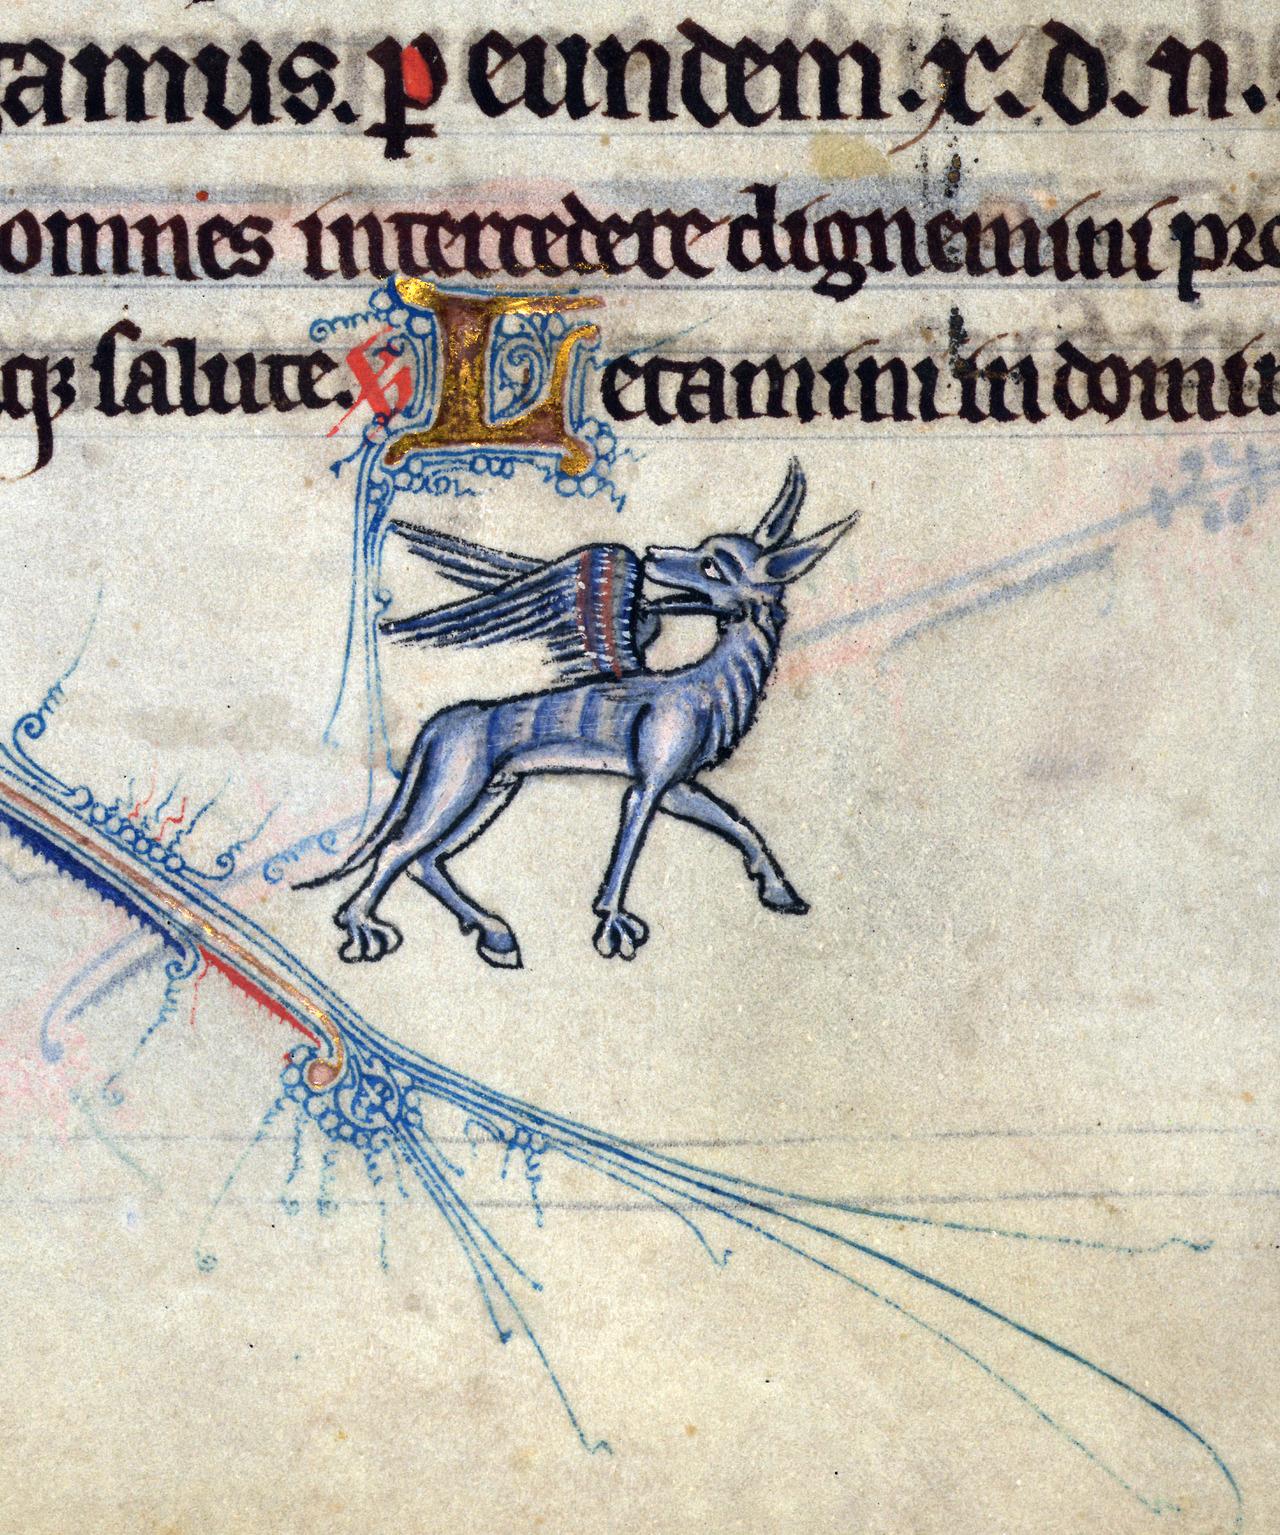 tamus. p eundem .x. d. n.
omnes intercedere dignemini pro
q3 salute. Letamini in domin